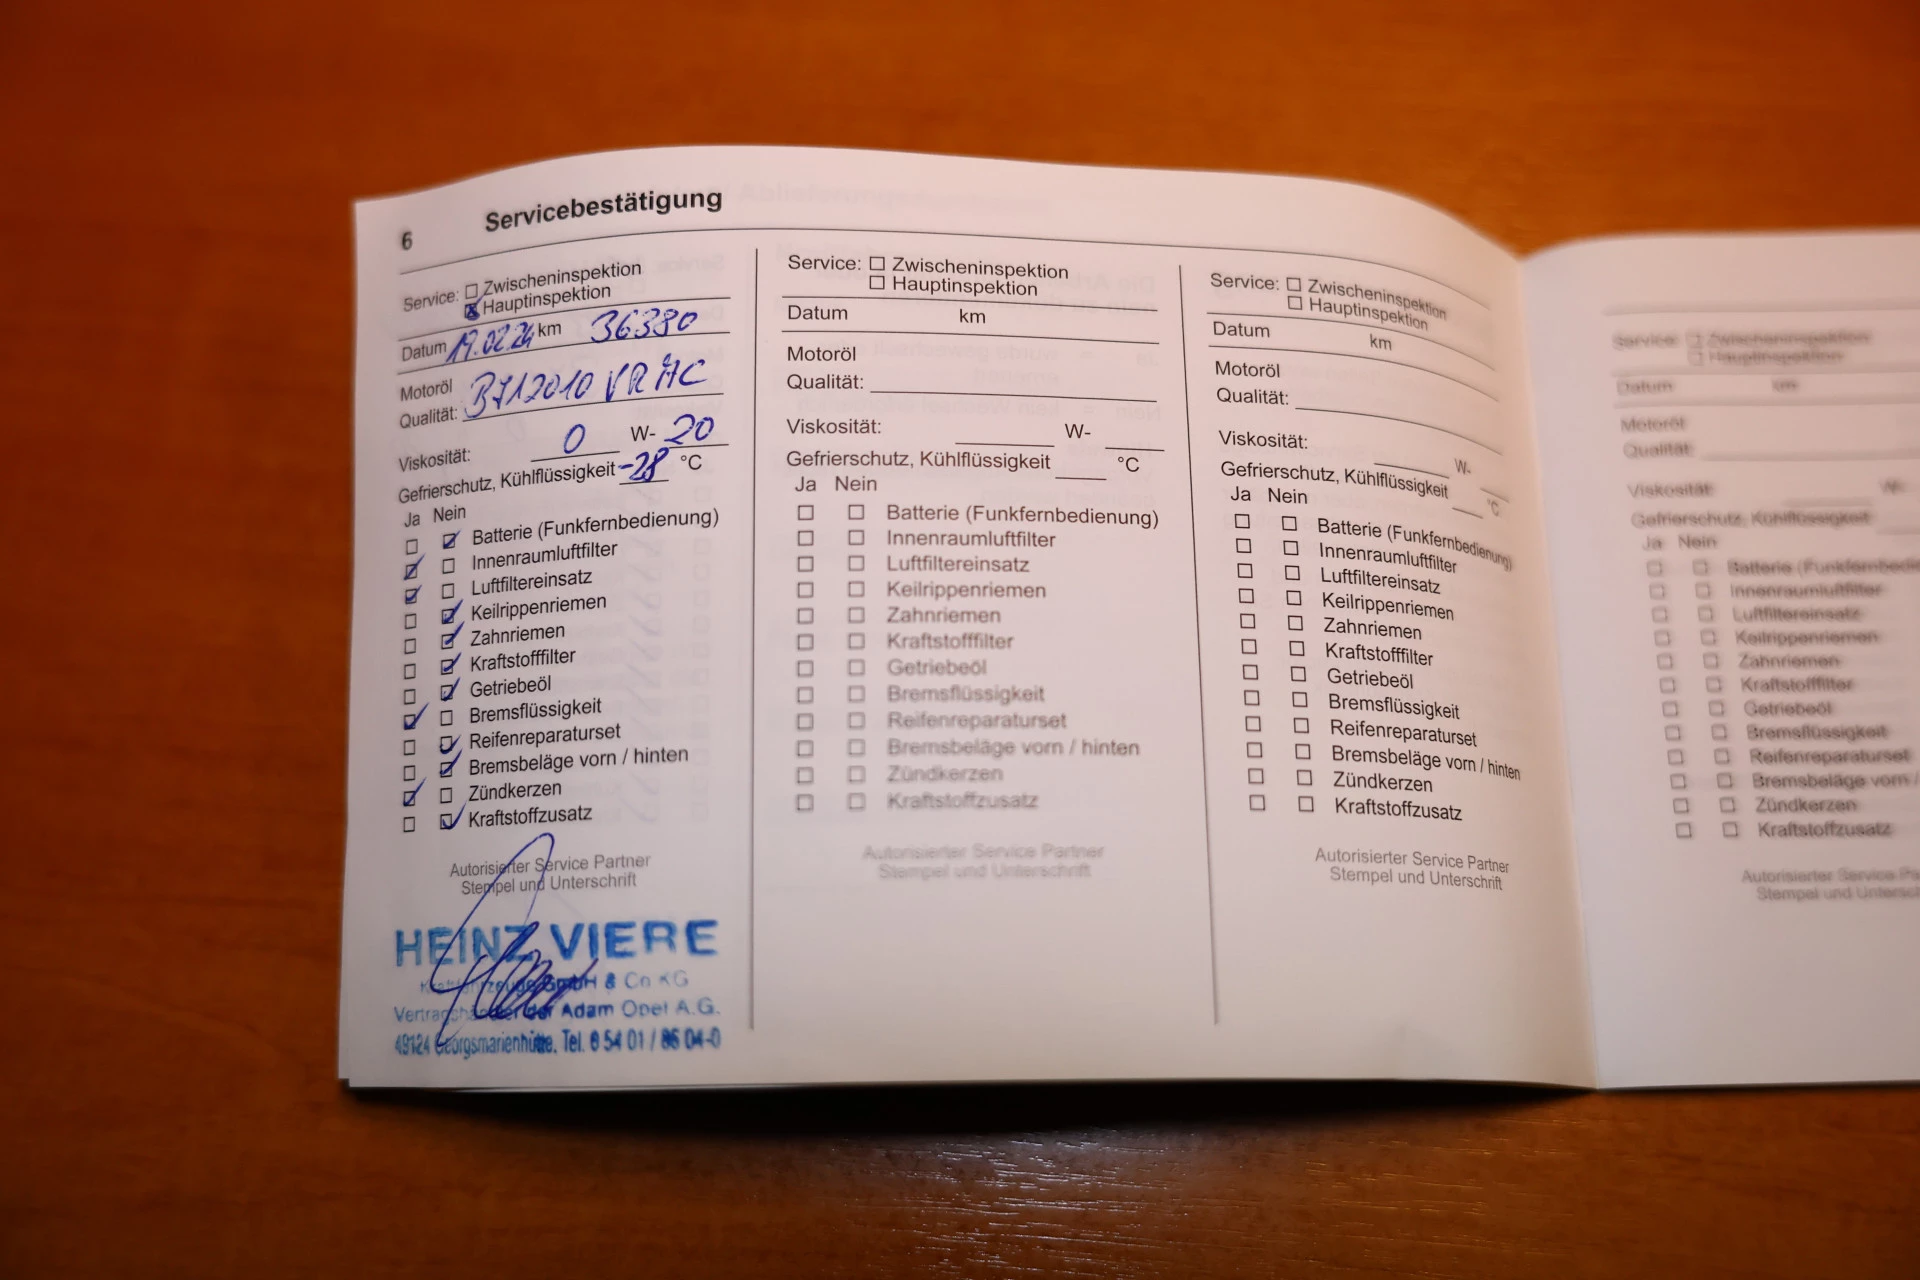 6 Servicebestätigung
Service: ☐ Zwischeninspektion
☒ Hauptinspektion
Datum 19.02.24 km 36380
Motoröl
Qualität: B712010 VR MC
Viskosität: 0 W- 20
Gefrierschutz, Kühlflüssigkeit -28 °C
Ja Nein
☐ ☑ Batterie (Funkfernbedienung)
☑ ☐ Innenraumluftfilter
☑ ☐ Luftfiltereinsatz
☐ ☑ Keilrippenriemen
☐ ☑ Zahnriemen
☐ ☑ Kraftstofffilter
☐ ☑ Getriebeöl
☑ ☐ Bremsflüssigkeit
☐ ☑ Reifenreparaturset
☐ ☑ Bremsbeläge vorn / hinten
☑ ☐ Zündkerzen
☐ ☑ Kraftstoffzusatz
Autorisierter Service Partner
Stempel und Unterschrift
HEINZ VIERE
Kraftfahrzeuge GmbH & Co KG
Vertragshändler der Adam Opel A.G.
49124 Georgsmarienhütte. Tel. 0 54 01 / 86 04-0
Service: ☐ Zwischeninspektion
☐ Hauptinspektion
Datum km
Motoröl
Qualität:
Viskosität: W-
Gefrierschutz, Kühlflüssigkeit °C
Ja Nein
☐ ☐ Batterie (Funkfernbedienung)
☐ ☐ Innenraumluftfilter
☐ ☐ Luftfiltereinsatz
☐ ☐ Keilrippenriemen
☐ ☐ Zahnriemen
☐ ☐ Kraftstofffilter
☐ ☐ Getriebeöl
☐ ☐ Bremsflüssigkeit
☐ ☐ Reifenreparaturset
☐ ☐ Bremsbeläge vorn / hinten
☐ ☐ Zündkerzen
☐ ☐ Kraftstoffzusatz
Autorisierter Service Partner
Stempel und Unterschrift
Service: ☐ Zwischeninspektion
☐ Hauptinspektion
Datum km
Motoröl
Qualität:
Viskosität: W-
Gefrierschutz, Kühlflüssigkeit °C
Ja Nein
☐ ☐ Batterie (Funkfernbedienung)
☐ ☐ Innenraumluftfilter
☐ ☐ Luftfiltereinsatz
☐ ☐ Keilrippenriemen
☐ ☐ Zahnriemen
☐ ☐ Kraftstofffilter
☐ ☐ Getriebeöl
☐ ☐ Bremsflüssigkeit
☐ ☐ Reifenreparaturset
☐ ☐ Bremsbeläge vorn / hinten
☐ ☐ Zündkerzen
☐ ☐ Kraftstoffzusatz
Autorisierter Service Partner
Stempel und Unterschrift
Service: ☐ Zwischeninspektion
☐ Hauptinspektion
Datum km
Motoröl
Qualität:
Viskosität: W-
Gefrierschutz, Kühlflüssigkeit
Ja Nein
☐ ☐ Batterie (Funkfernbedie
☐ ☐ Innenraumluftfilter
☐ ☐ Luftfiltereinsatz
☐ ☐ Keilrippenriemen
☐ ☐ Zahnriemen
☐ ☐ Kraftstofffilter
☐ ☐ Getriebeöl
☐ ☐ Bremsflüssigkeit
☐ ☐ Reifenreparaturset
☐ ☐ Bremsbeläge vorn /
☐ ☐ Zündkerzen
☐ ☐ Kraftstoffzusatz
Autorisierter Service Pa
Stempel und Unterschrift